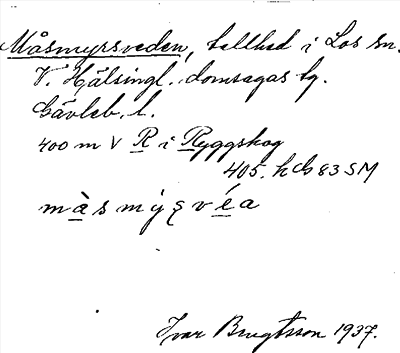 Måsmyrsveden, tallhed i Los sn.
V. Hälsingl. domsagas tg.
Gävleb. l.
400 m V R i Ryggskog
405. h Gb 83 SM
màsmýșvéa
Ivar Bengtsson 1937.